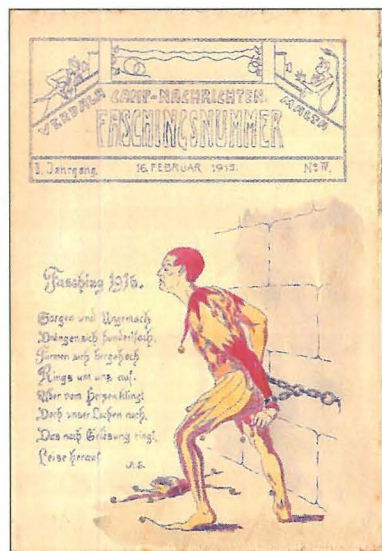 CAMP-NACHRICHTEN.
VERDALA
MALTA
FASCHINGSNUMMER
I. Jahrgang.
16. FEBRUAR 1915.
No IV.
Fasching 1915.
Sorgen und Ungemach
Drängen sich hundertfach,
Türmen sich bergehoch
Rings um uns auf.
Aber vom Herzen klingt
Doch unser Lachen noch,
Das nach Erlösung ringt,
Leise herauf